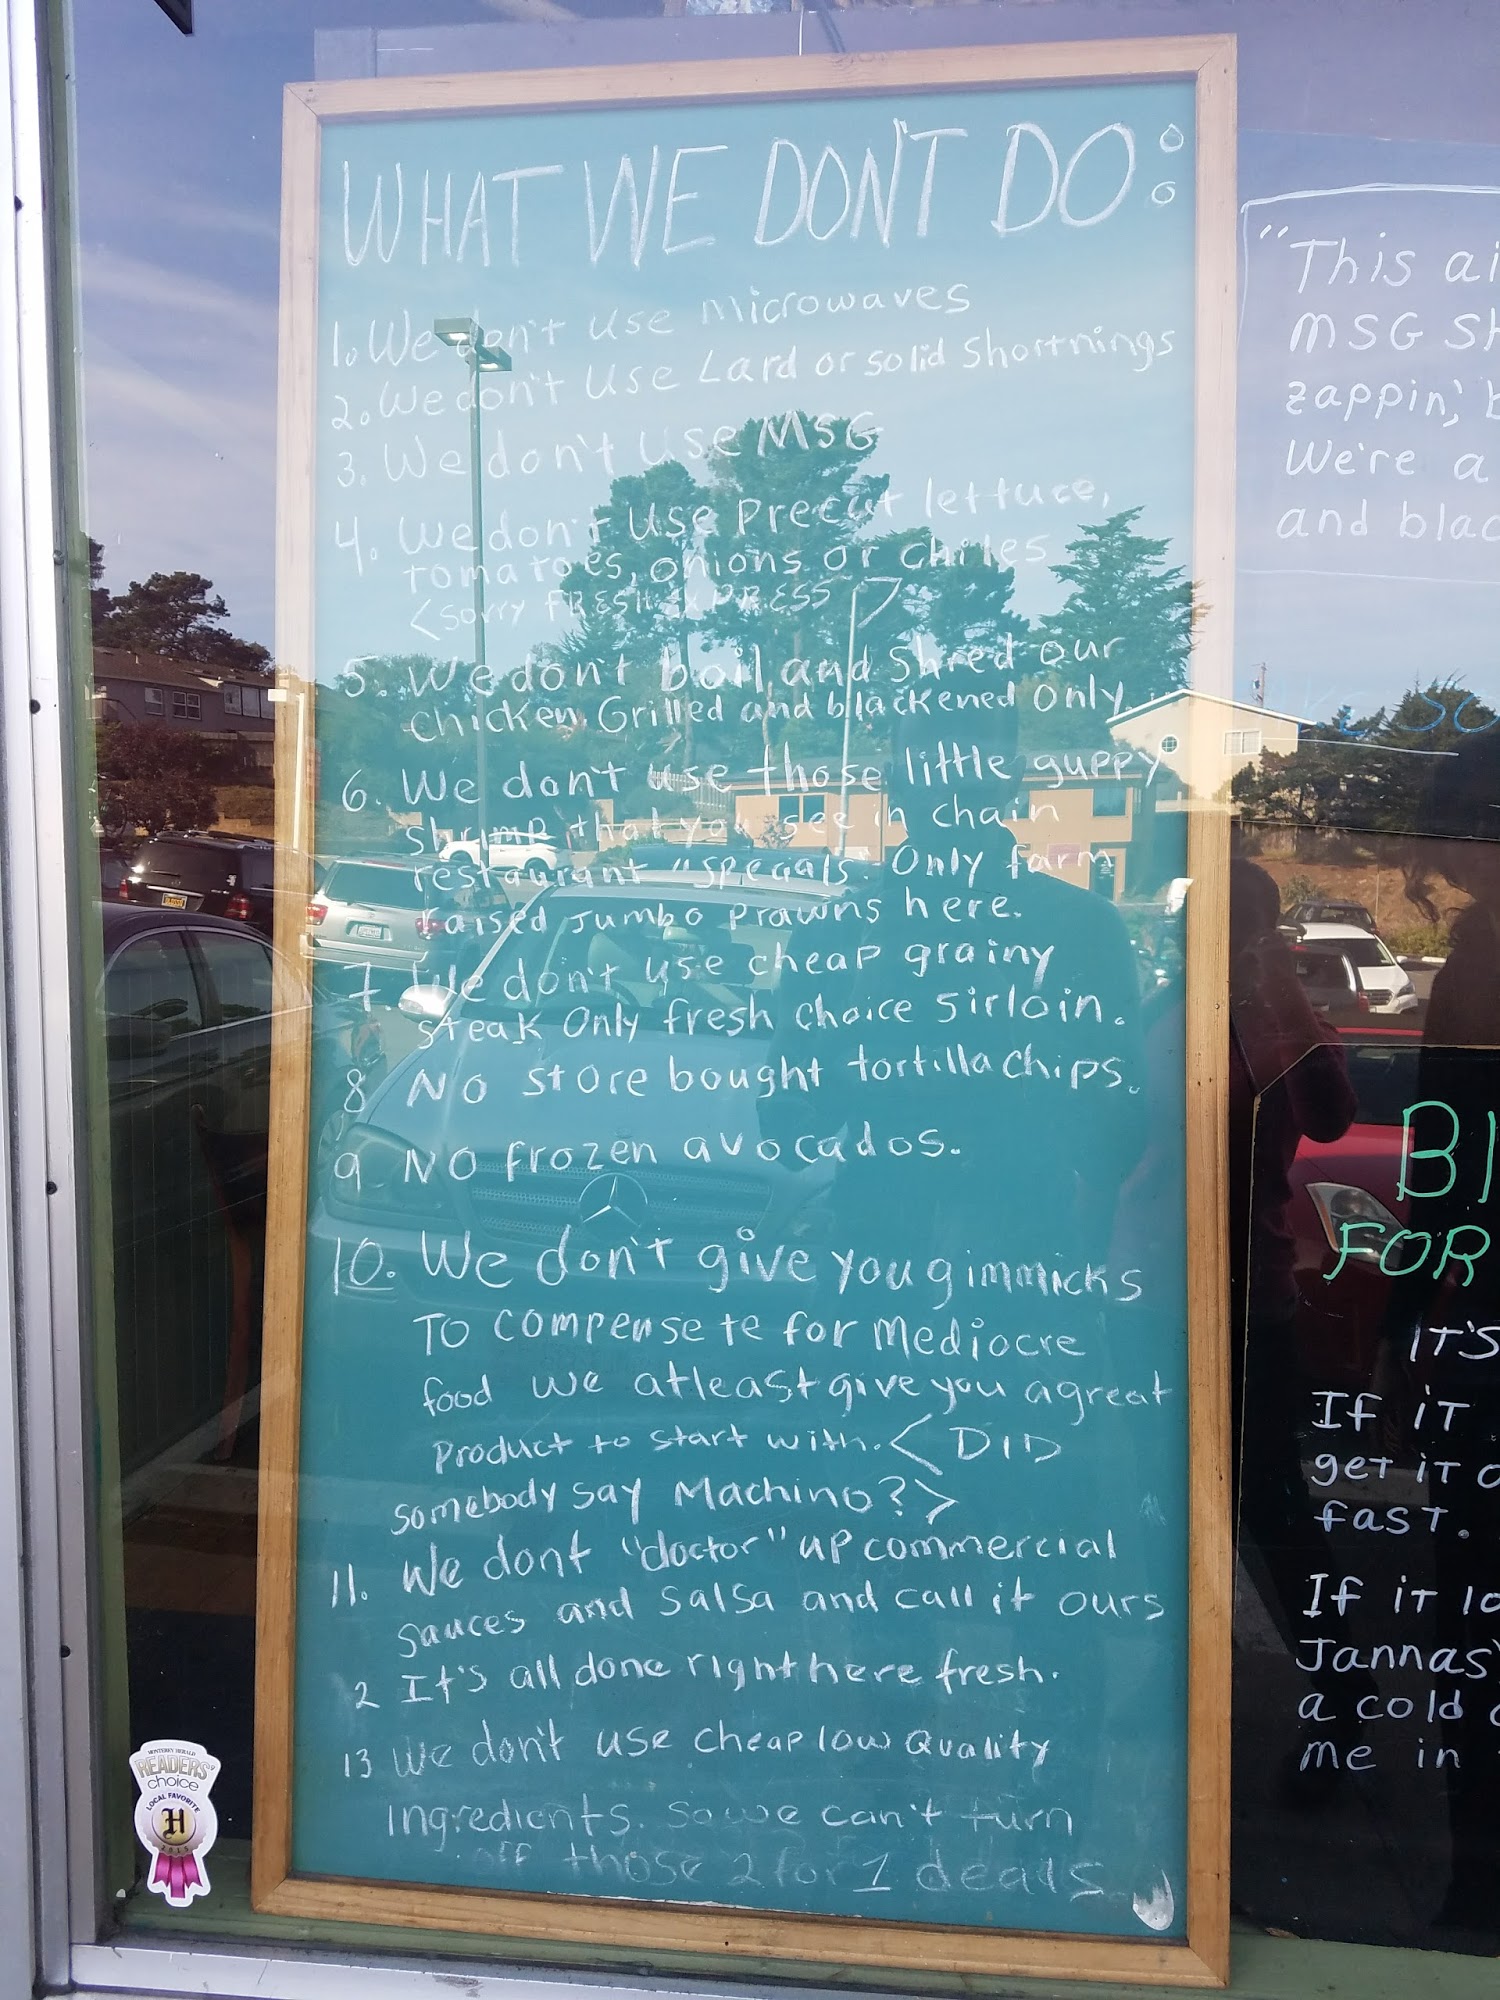 WHAT WE DON'T DO:
1. We don't use microwaves
2. We don't use Lard or solid Shortnings
3. We don't use MSG
4. We don't use precut lettuce,
tomatoes, onions or chiles
<sorry FRESH EXPRESS>
5. We don't boil and shred our
chicken, Grilled and blackened Only.
6. We don't use those little guppy
shrimp that you see in chain
restaurant "specials. Only farm
raised Jumbo prawns here.
7. We don't use cheap grainy
steak Only fresh choice sirloin.
8 No store bought tortilla chips.
9 NO frozen avocados.
10. We don't give you gimmicks
TO compensete for Mediocre
food we atleast give you a great
product to start with. <DID
somebody say Machino?>
11. We dont "doctor" up commercial
sauces and salsa and call it ours
2 It's all done right here fresh.
13 We don't use cheap low Quality
Ingredients. So we can't turn
off those 2 for 1 deals
"This ai
MSG Sh
zappin',
We're a
and blac
BI
FOR
IT'S
If iT
get iT
fast.
If iT lo
Jannas'
a cold
me in
MONTEREY HERALD
READERS'
choice
LOCAL FAVORITE
H
2015